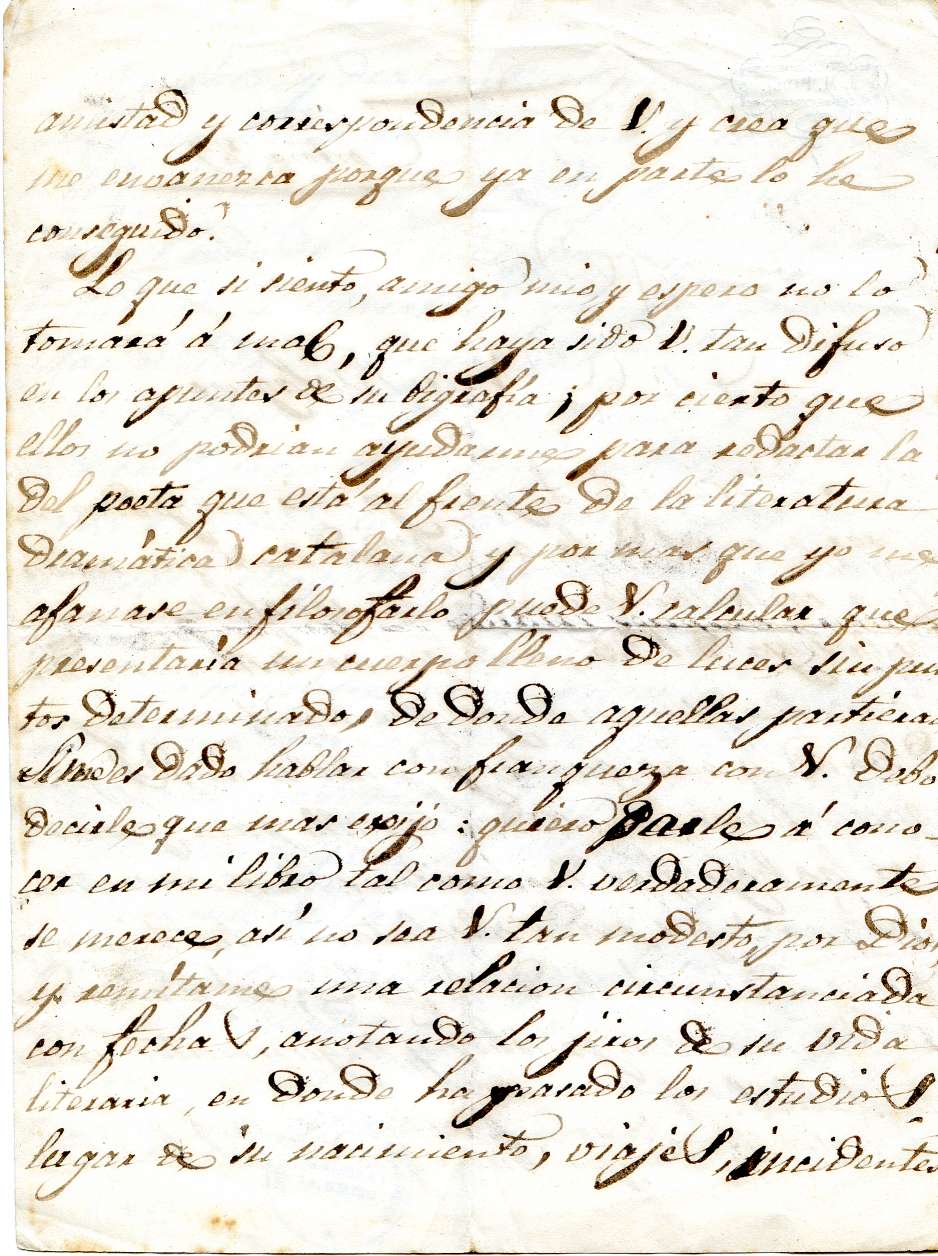 amistad y correspondencia de V. y crea que
me envanezca porque ya en parte lo he
conseguido.
Lo que si siento, amigo mio, y espero no lo
tomará á mal, que haya sido V. tan difuso
en los apuntes de su bigrafía; por cierto que
ellos no podrian ayudarme para redactar la
del poeta que está al frente de la literatura
dramática catalana y por mas que yo me
afanase en filosofarlo puede V. calcular que
presentaría un cuerpo lleno de luces sin pun
tos determinados de donde aquellas partieran
Si me es dado hablar con franqueza con V. debo
decirle que mas exijo: quiero darle á cono-
cer en mi libro tal como V. verdaderamente
se merece, así no sea V. tan modesto, por Dios,
y remítame una relacion circunstanciada
con fechas, anotando los jiros de su vida
literaria, en donde ha pasado los estudios,
lugar de su nacimiento, viajes, incidentes